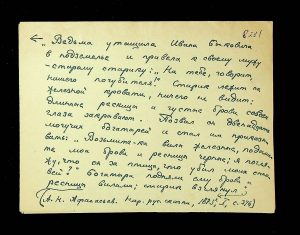 8231
← „Ведьма утащила Ивана Быковича
в подземелье и привела к своему мужу
– старому старику: „На тебе, говорит,
нашего погубителя!" Старик лежит на
железной кровати, ничего не видит:
длинные ресницы и густые брови совсем
глаза закрывают. Позвал он двенадцать
могучих богатырей и стал им приказы-
вать: „Возьмите-ка вилы железные, подыми-
те мои брови и ресницы черные, я погля-
жу, что он за птица, что убил моих сыно-
вей?" Богатыри подняли ему брови и
ресницы вилами; старик взглянул..."
(А. Н. Афанасьев. Нар. рус. сказки, 1873,